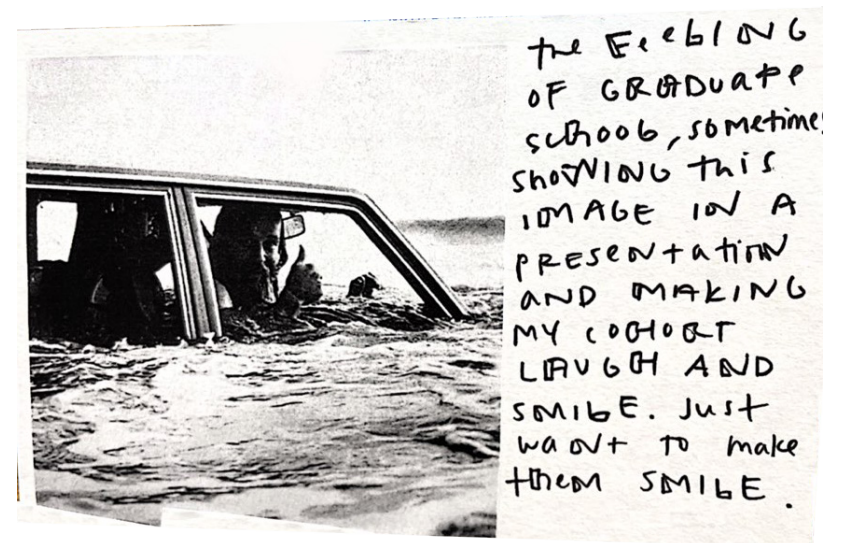 the FEeliNG
OF GRADUATe
school, sometimes
shoWING this
IMAGE IN A
PREseNtatioN
AND MAKING
MY COHORT
LAUGH AND
SMILE. Just
waNt TO make
theM SMILE.